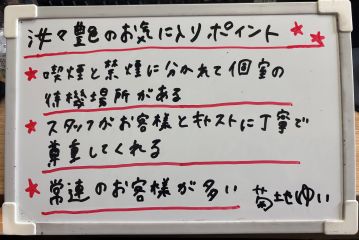 汁々艶のお気に入りポイント
★喫煙と禁煙に分かれて個室の
待機場所がある
★スタッフがお客様とキャストに丁寧で
尊重してくれる
★常連のお客様が多い 菊地ゆい